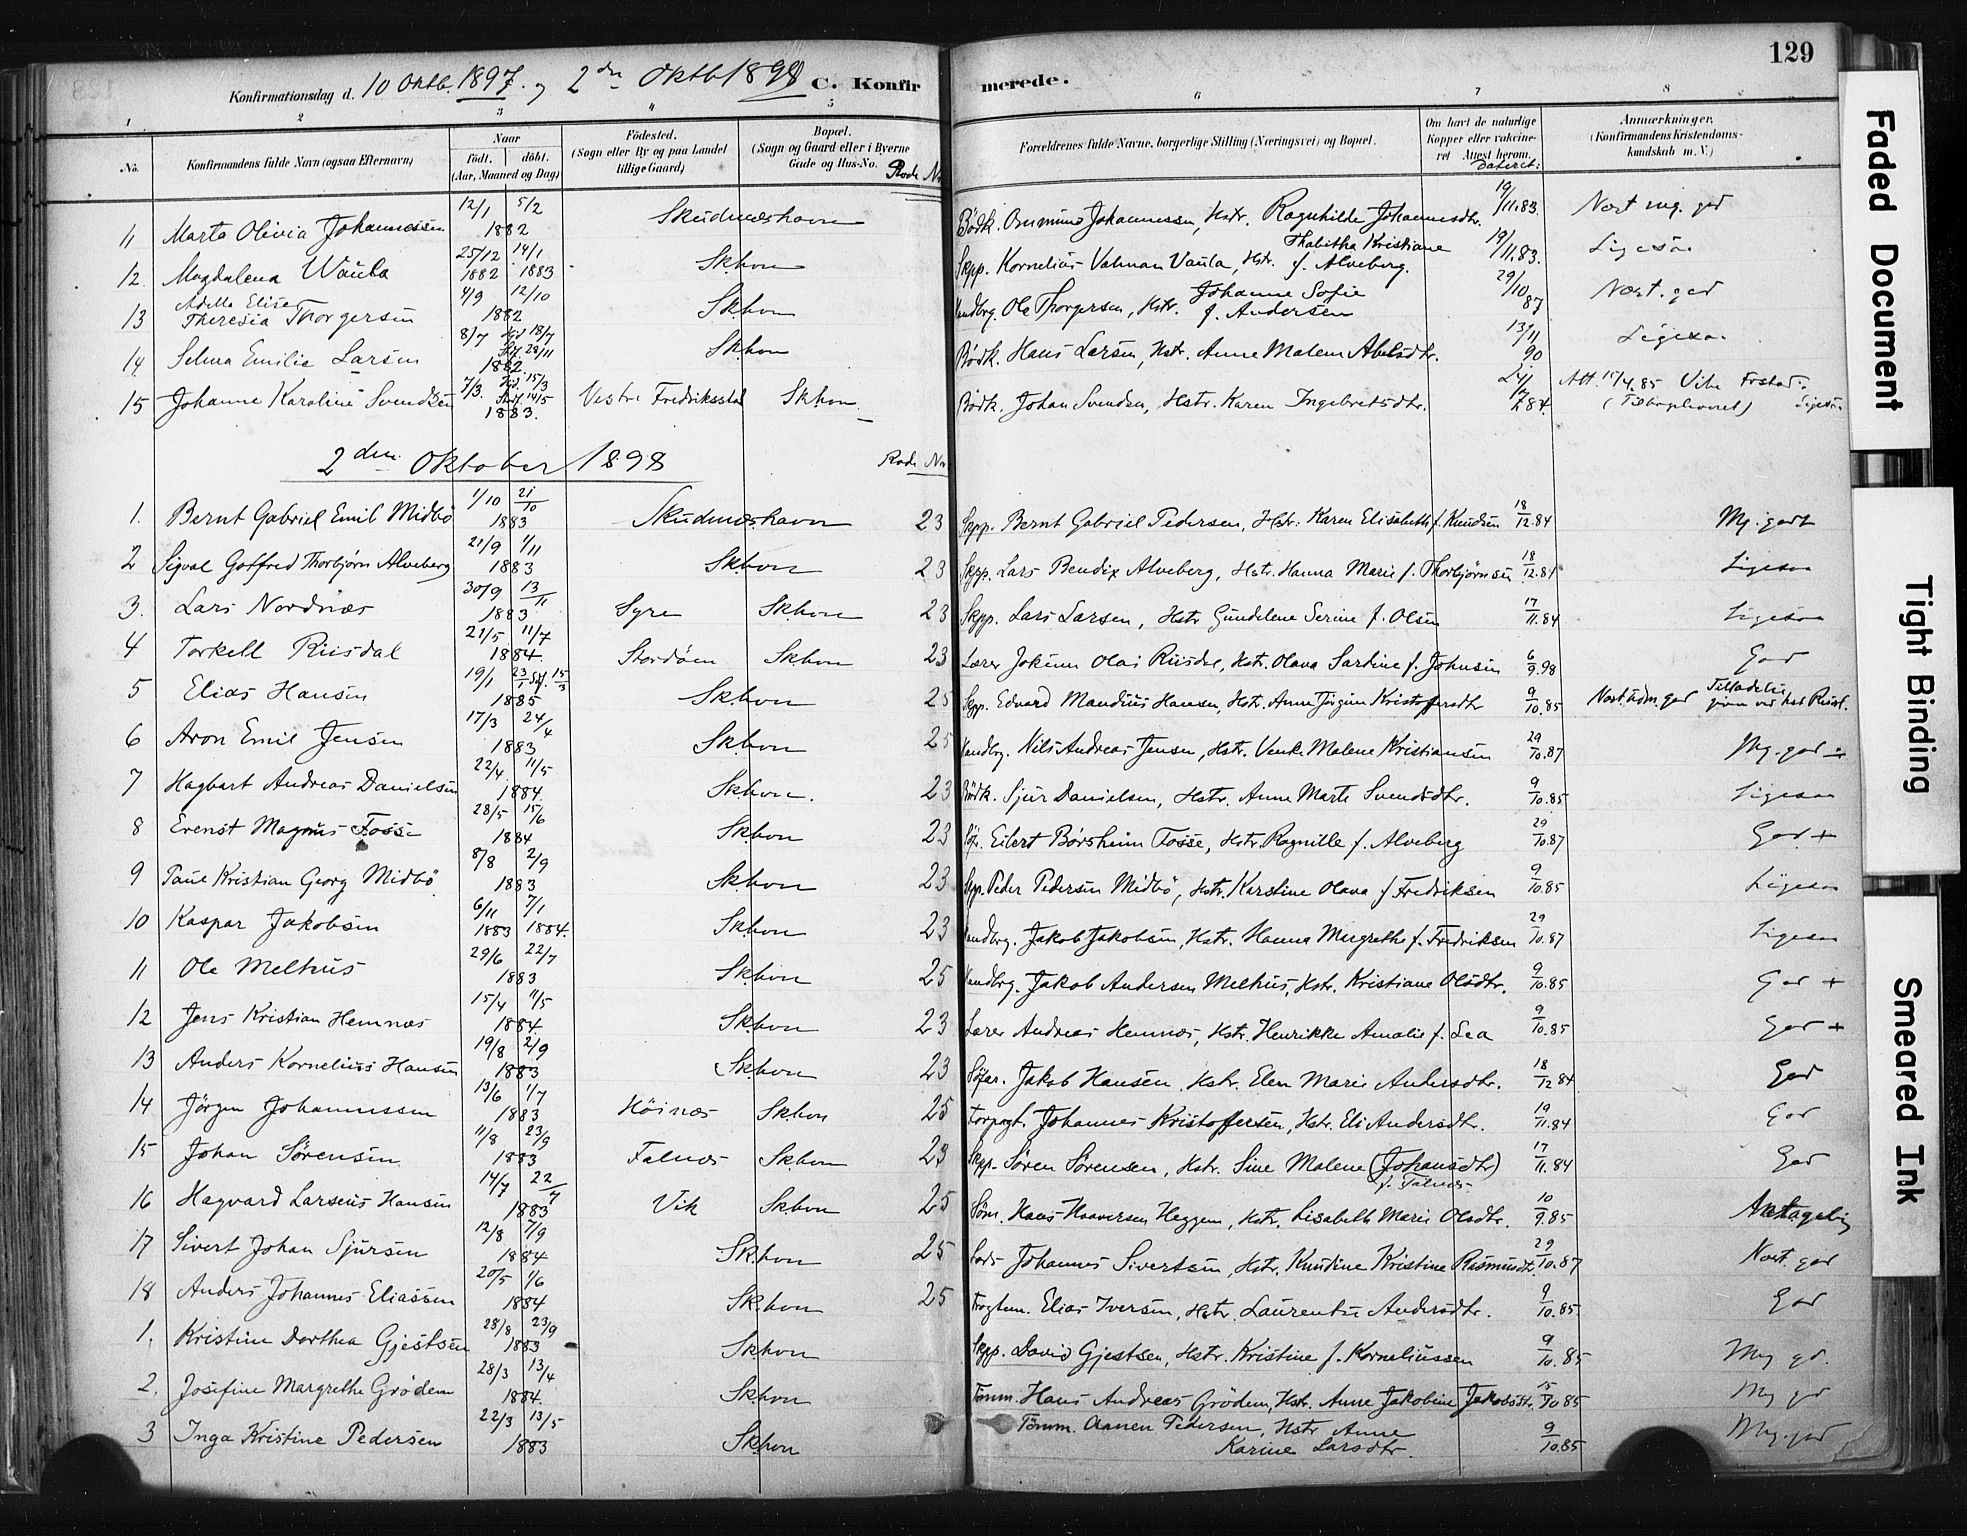 129
Konfirmationsdag d. 10 Oktb. 1897. og 2den Oktb 1898 C. Konfirmerede.
1 2 3 4 5 6 7 8
No. Konfirmandens fulde Navn (ogsaa Efternavn) Naar født, døbt. (Aar, Maaned og Dag) Fødested. (Sogn eller By og paa Landet tillige Gaard) Bopæl. (Sogn og Gaard eller i Byerne Gade og Hus-No. Rode No Forældrenes fulde Navne, borgerlige Stilling (Næringsvei) og Bopæl. Om havt de naturlige Kopper eller vakcineret Attest herom. Dateret: Anmerkninger. (Konfirmandens Kristendomskundskab m. V.)
11 Marta Olivia Johannessen 12/1 5/2 1882 Skudneshavn Bødk. Johannessen, Hstr. Ragnhilde Johannesdtr. 19/11.83. Næst mg. god
12. Magdalena Waula 25/12 1882 14/1 1883 Skhvn Skpp. Kornelius Valman Vaula, Hstr. Thabitha Kristiane f. Alveberg. 19/11.83. Ligesaa
13 Adelle Elise Theresia Thorgersen 4/9 12/10 1882 Skhvn Vandbrg. Ole Thorgersen, Hstr. Johanne Sofie f. Andersen 29/10 87 Næst. god
14. Selma Emilia Larsen 8/7 Hjd 18/7 Skf. 28/11 1882. Skhvn Bødk. Hans Larsen, Hstr. Anne Malene Abelsdtr. 13/11 90 Ligesaa
15 Johanne Karoline Svendsen 7/3. Hjd. 15/3 Skf. 14/5 1883. Vestre Fredriksstad Skhvn Bødk. Johan Svendsen, Hstr. Karen Ingebretsdtr. 84. Att. 15/4.85 Vibe Frstad. (Tilbageleveret) Ligesaa
2den Oktober 1898 Rode No
1. Bernt Gabriel Emil Midbö 1/10 21/10 1883 Skudneshavn 23 Skpp. Bernt Gabriel Pedersen, Hstr. Karen Elisabeth f. Knudsen 18/12.84 Mg. godt
2 Sigval Gotfred Thorbjørn Alveberg 21/9 1/11 1883 Skhvn 23 Skpp. Lars Bendix Alveberg, Hstr. Hanna Marie f. Thorbjørnsen 18/12.84 Ligesaa
3. Lars Nordnæs 30/9 13/11 1883 Syre Skhvn 23 Skpp. Lars Larsen, Hstr Gundelene Serine f. Olsen 17/11.84 Ligesaa
4 Torkell Riisdal 21/5 11/7 1884. Stordøen Skhvn 23 Lærer Jokum Olai Riisdal, Hstr. Olava Sardine f. Johnsen 6/9.98 God
5 Elias Hansen 19/1 23/1 Skf. 15/3 1885 Skhvn 25 Skpp. Edvard Mandius Hansen, Hstr. Anne Jørgine Kristoffersdtr 9/10.85 Næst. udm. god Tilladelse given ved kgl. Resol.
6 Aron Emil Jensen 17/3 24/4 1883 Skhvn 25 Vandbrg. Nils Andreas Jensen, Hstr. Venke Malene Kristiansen 29/10.87 Mg. god
7 Hagbart Andreas Danielsen 22/4. 11/5 1884. Skhvn. 23 Bødk. Sjur Danielsen, Hstr. Anne Marte Svendsdtr. 9/10.85 Ligesaa
8 Erenst Magnus Fosse 28/5 15/6 1884 Skhvn 23 Söf. Eilert Børsheim Fosse, Hstr. Ragnille f. Alveberg 29/10.87 God. +
9 Paul Kristian Georg Midbö 8/8 2/9 1883 Skhvn 23 Skpp. Peder Pedersen Midbö, Hstr. Karstine Olava f. Fredriksen 9/10.85 Ligesaa
10 Kaspar Jakobsen 6/11 1883 7/1 1884. Skhvn 23 Vandbrg. Jakob Jakobsen, Hstr. Hanna Margrethe f. Fredriksen 29/10.87 Ligesaa
11 Ole Melhus 29/6 22/7 1883 Skhvn 25 Vandbrg. Jakob Andersen Melhus, Hstr. Kristiane Olsdtr. 9/10.85 God +
12 Jens Kristian Hemnæs 15/4 11/5 1884. Skhvn 23 Lærer Andreas Hemnæs, Hstr. Henrikke Amalie f. Lea 9/10.85 God +
13 Anders Kornelius Hansen 19/8 2/9 1883 Skhvn 23 Söfar. Jakob Hansen, Hstr. Elen Marie Andersdtr. 18/12 84 God
14 Jörgen Johannessen 13/6 1/7 1883 Höinæs Skhvn 25 Forpagt. Johannes Kristoffersen, Hstr. Eli Andersdtr. 19/11.84 God
15 Johan Sörensen 11/8 23/9 1883 Falnæs Skhvn 23 Skpp. Søren Sørensen, Hstr. Sine Malene (Johansdtr) f. Falnæs 17/11.84 God
16 Hagvard Larsenius Hansen 14/7 22/7 1883 Vik Skhvn 25 Søm. Hans Haaversen Heggem, Hstr. Lisabeth Marie Olsdtr. 10/9.85 Antagelig
17 Sivert Johan Sjursen 12/8 7/9 1884 Skhvn 25 Lods Johannes Sivertsen, Hstr. Knudine Kristine Rasmusdtr. 29/10.87 Næst. god
18 Anders Johannes Eliassen 20/5 1/6 1884 Skhvn 25 Elias Iversen, Hstr. Laurentse Andersdtr. 9/10.85 God
1. Kristine Dorthea Gjestsen 28/8 23/9 1883 Skhvn Skpp. David Gjestsen, Hstr. Kristine f. Korneliussen 9/10.85 Mg gd.
2. Josefine Margrethe Grödem 28/3 13/4 1884. Skhvn Tömm. Hans Andreas Grödem, Hstr. Anne Jakobine Jakobsdtr. 15/10 85 Mg gd
3 Inga Kristine Pedersen 22/3 13/5 1883 Skhvn Tömm. Aanen Pedersen, Hstr Anne Karine Larsdtr. 9/10.85 Mg. god
Faded Document
Tight Binding
Smeared Ink